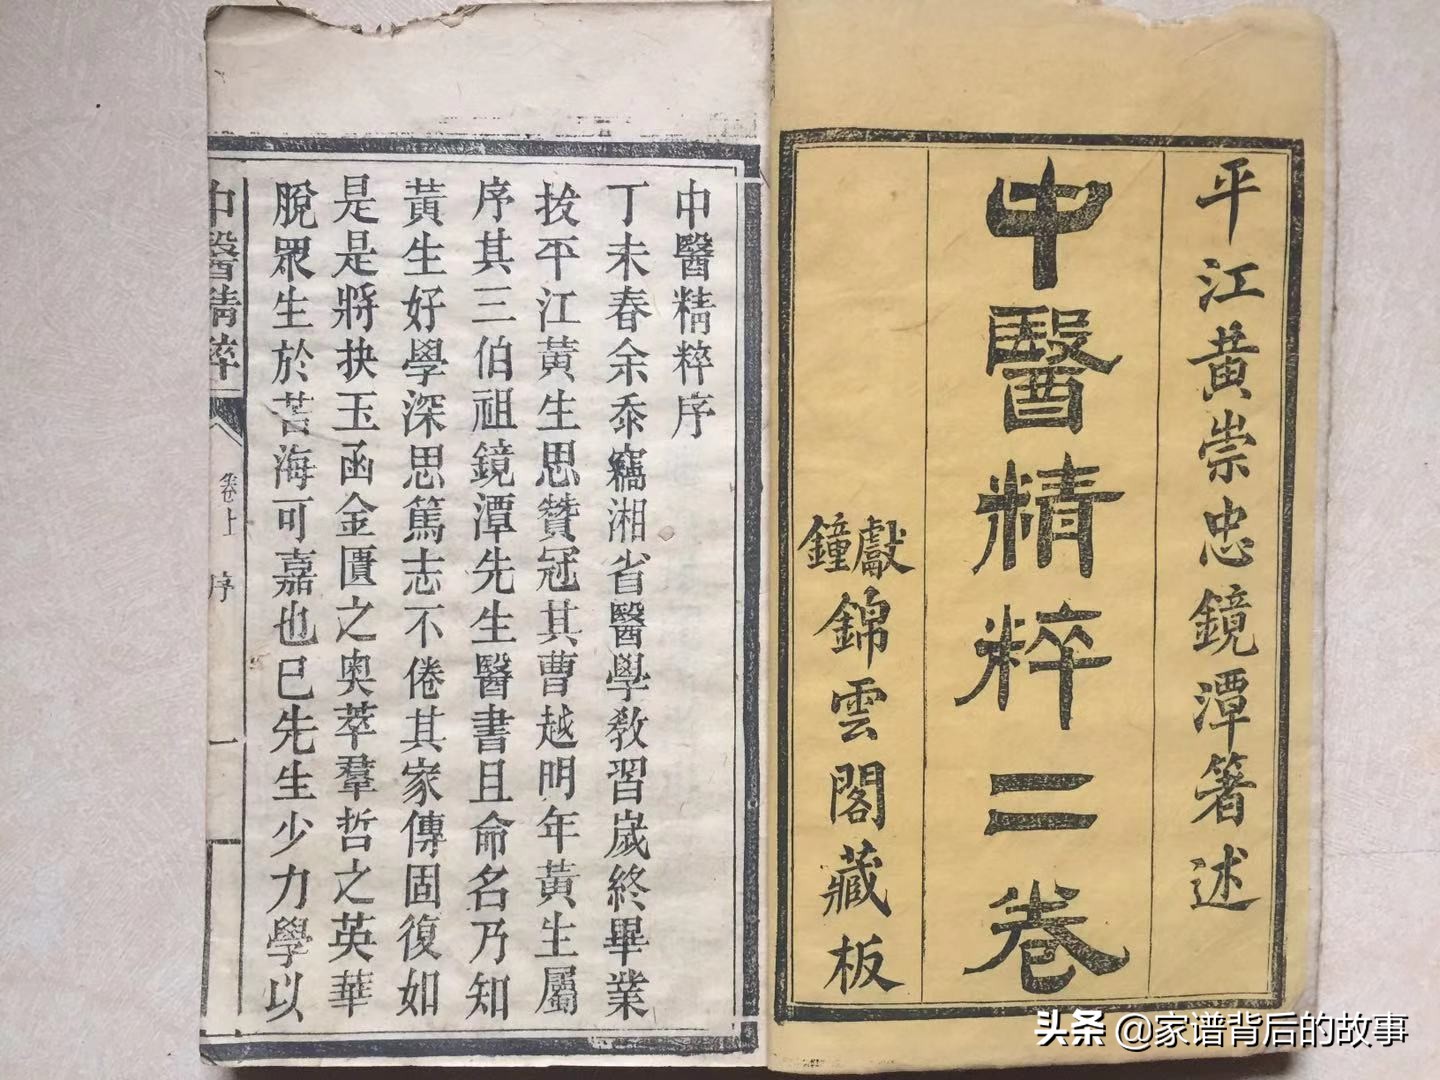 平江黃崇忠鏡潭箸述
中醫精粹二卷
獻鐘錦雲閣藏板
中醫精粹序
丁未春余忝竊湘省醫學敎習歲終畢業
拔平江黃生思贊冠其曹越明年黃生屬
序其三伯祖鏡潭先生醫書且命名乃知
黃生好學深思篤志不倦其家傳固復如
是是將抉玉函金匱之奧萃羣哲之英華
脫眾生於苦海可嘉也巳先生少力學以
中醫精粹
卷上
序
一
头条 @家谱背后的故事